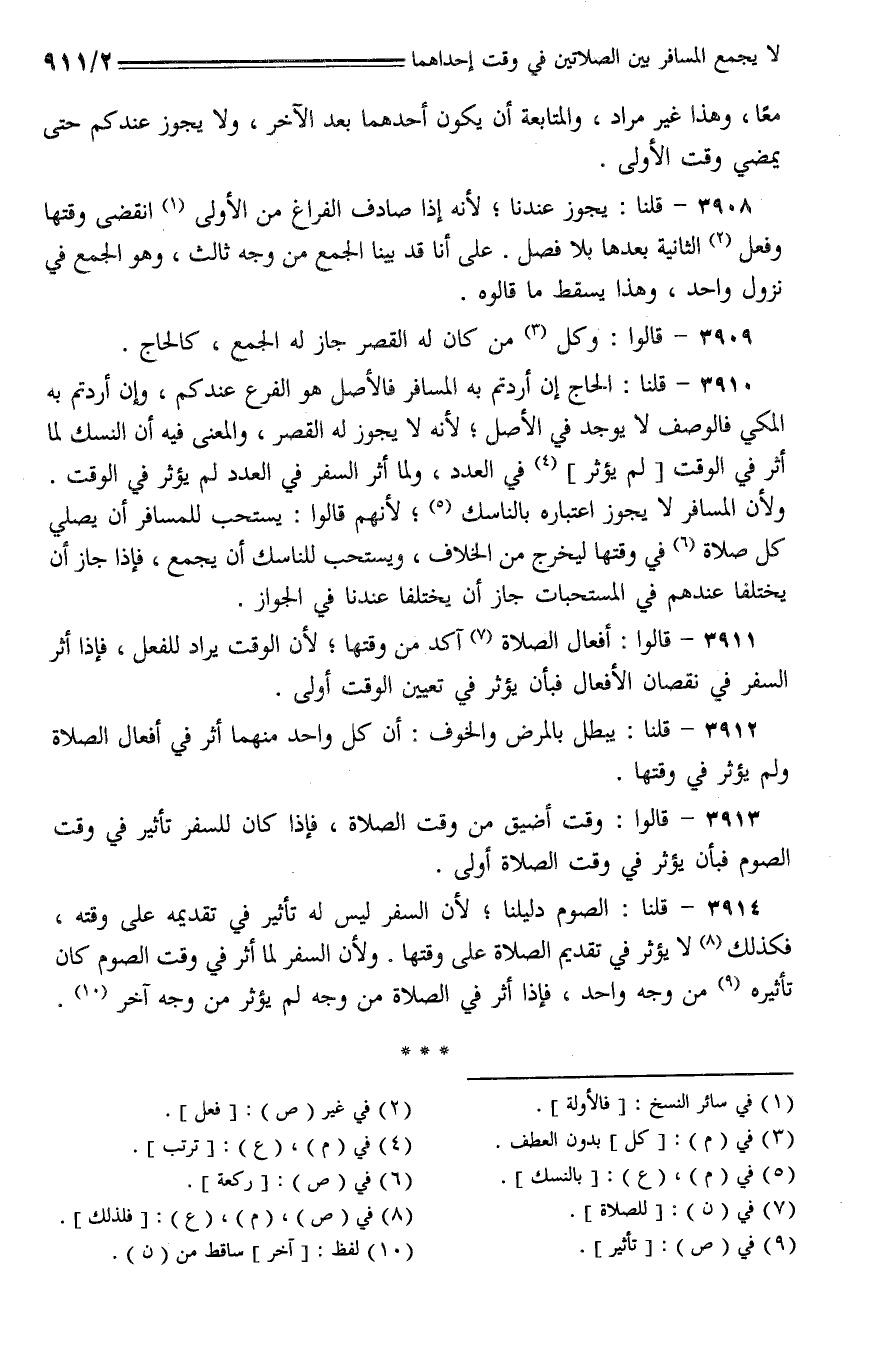 لا يجمع المسافر بين الصلاتين في وقت إحداهما ٩١١/٢
معًا ، وهذا غير مراد ، والمتابعة أن يكون أحدهما بعد الآخر ، ولا يجوز عندكم حتى
يمضي وقت الأولى .
٣٩٠٨ - قلنا : يجوز عندنا ؛ لأنه إذا صادف الفراغ من الأولى (١) انقضى وقتها
وفعل (٢) الثانية بعدها بلا فصل . على أنا قد بينا الجمع من وجه ثالث ، وهو الجمع في
نزول واحد ، وهذا يسقط ما قالوه .
٣٩٠٩ - قالوا : وكل (٣) من كان له القصر جاز له الجمع ، كالحاج .
٣٩١٠ - قلنا : الحاج إن أردتم به المسافر فالأصل هو الفرع عندكم ، وإن أردتم به
المكي فالوصف لا يوجد في الأصل ؛ لأنه لا يجوز له القصر ، والمعنى فيه أن النسك لما
أثر في الوقت [ لم يؤثر ] (٤) في العدد ، ولما أثر السفر في العدد لم يؤثر في الوقت .
ولأن المسافر لا يجوز اعتباره بالناسك (٥) ؛ لأنهم قالوا : يستحب للمسافر أن يصلي
كل صلاة (٦) في وقتها ليخرج من الخلاف ، ويستحب للناسك أن يجمع ، فإذا جاز أن
يختلفا عندهم في المستحبات جاز أن يختلفا عندنا في الجواز .
٣٩١١ - قالوا : أفعال الصلاة (٧) آكد من وقتها ؛ لأن الوقت يراد للفعل ، فإذا أثر
السفر في نقصان الأفعال فبأن يؤثر في تعيين الوقت أولى .
٣٩١٢ - قلنا : يبطل بالمرض والخوف : أن كل واحد منهما أثر في أفعال الصلاة
ولم يؤثر في وقتها .
٣٩١٣ - قالوا : وقت أضيق من وقت الصلاة ، فإذا كان للسفر تأثير في وقت
الصوم فبأن يؤثر في وقت الصلاة أولى .
٣٩١٤ - قلنا : الصوم دليلنا ؛ لأن السفر ليس له تأثير في تقديمه على وقته ،
فكذلك (٨) لا يؤثر في تقديم الصلاة على وقتها . ولأن السفر لما أثر في وقت الصوم كان
تأثيره (٩) من وجه واحد ، فإذا أثر في الصلاة من وجه لم يؤثر من وجه آخر (١٠) .
* * *
(١) في سائر النسخ : [ فالأولة ] .
(٢) في غير ( ص ) : [ فعل ] .
(٣) في ( م ) : [ كل ] بدون العطف .
(٤) في ( م ) ، ( ع ) : [ ترتب ] .
(٥) في ( م ) ، ( ع ) : [ بالنسك ] .
(٦) في ( ص ) : [ ركعة ] .
(٧) في ( ن ) : [ للصلاة ] .
(٨) في ( ص ) ، ( م ) ، ( ع ) : [ فلذلك ] .
(٩) في ( ص ) : [ تأثير ] .
(١٠) لفظ : [ آخر ] ساقط من ( ن ) .